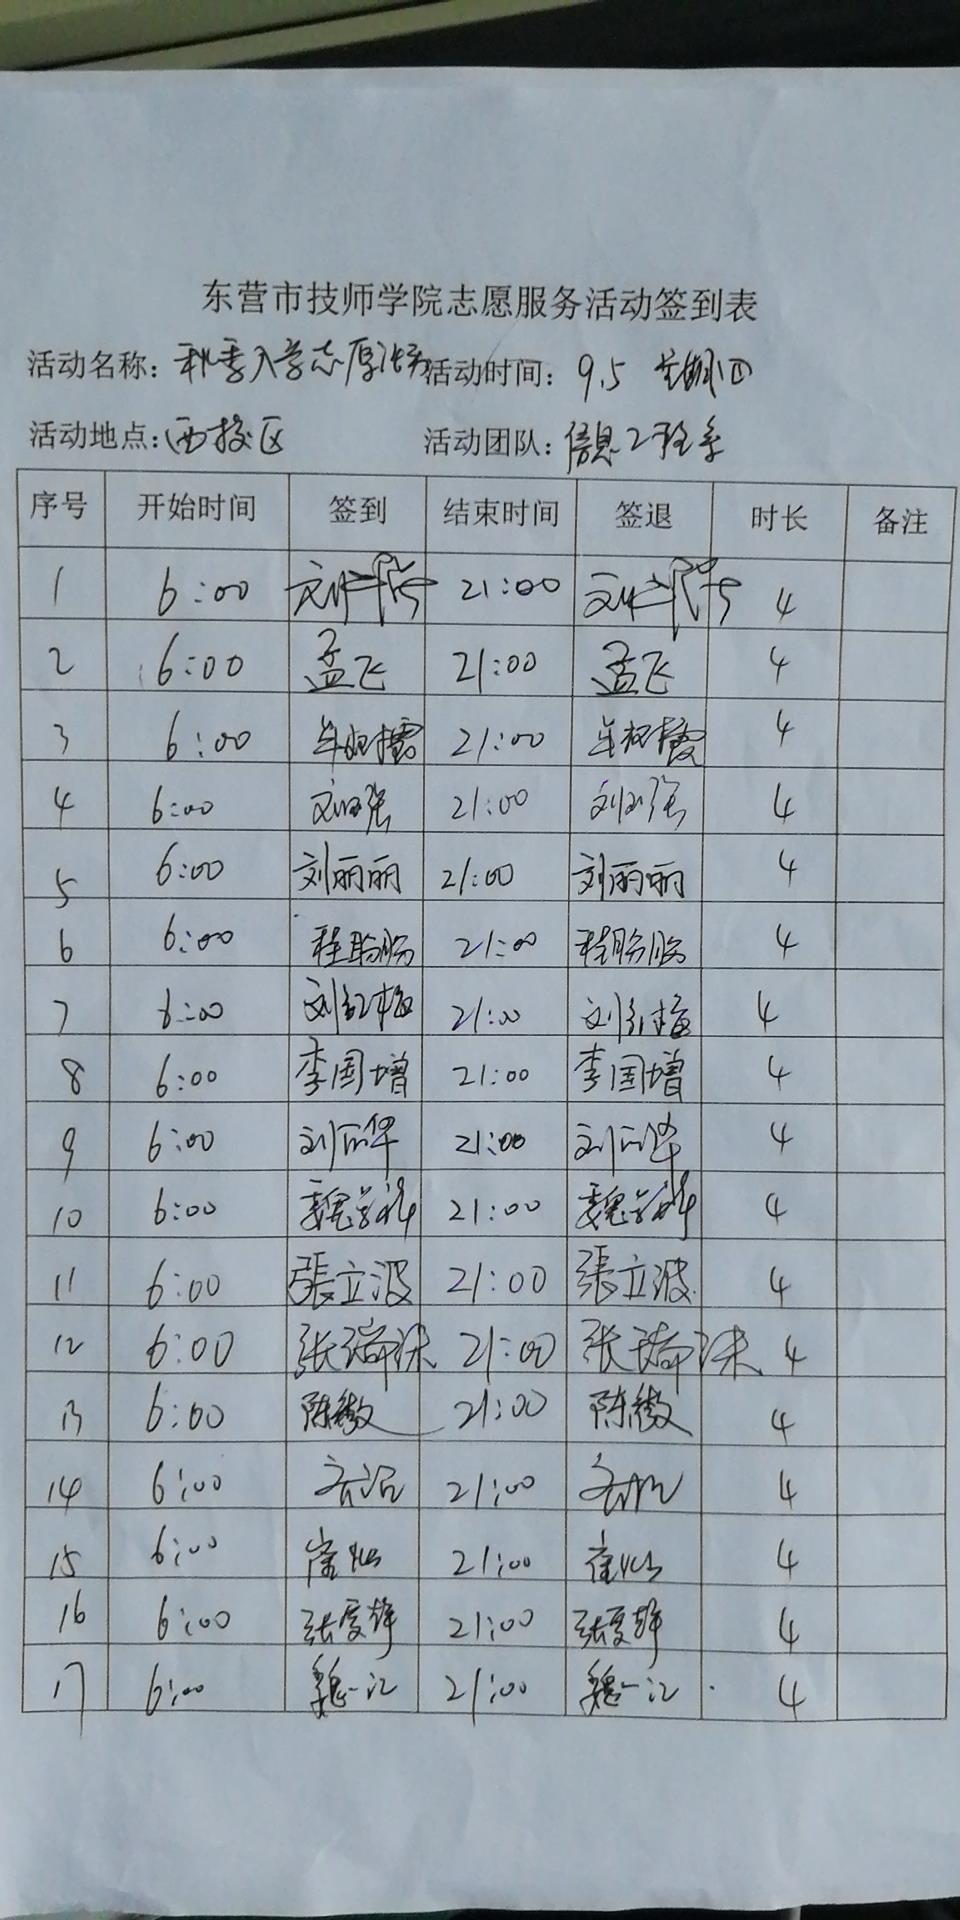 东营市技师学院志愿服务活动签到表
活动名称：秋季入学志愿活动 活动时间：9.5 星期四
活动地点：西校区 活动团队：信息工程系
序号 开始时间 签到 结束时间 签退 时长 备注
1 6:00 21:00 4
2 6:00 孟飞 21:00 孟飞 4
3 6:00 21:00 4
4 6:00 21:00 4
5 6:00 刘丽丽 21:00 刘丽丽 4
6 6:00 21:00 4
7 6:00 刘红梅 21:00 刘红梅 4
8 6:00 李国增 21:00 李国增 4
9 6:00 刘丽华 21:00 刘丽华 4
10 6:00 21:00 4
11 6:00 張立波 21:00 張立波 4
12 6:00 21:00 4
13 6:00 21:00 4
14 6:00 21:00 4
15 6:00 21:00 4
16 6:00 21:00 4
17 6:00 21:00 4